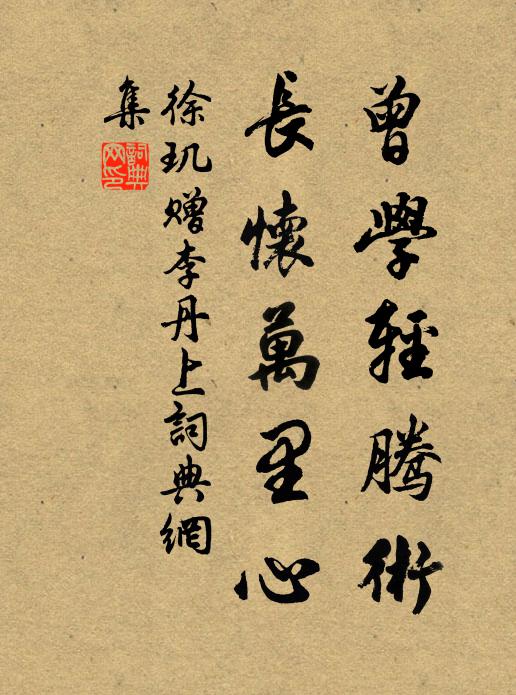 曾學輕騰術
長懷萬里心
徐玑贈李丹上詞典網
集
詞典網印